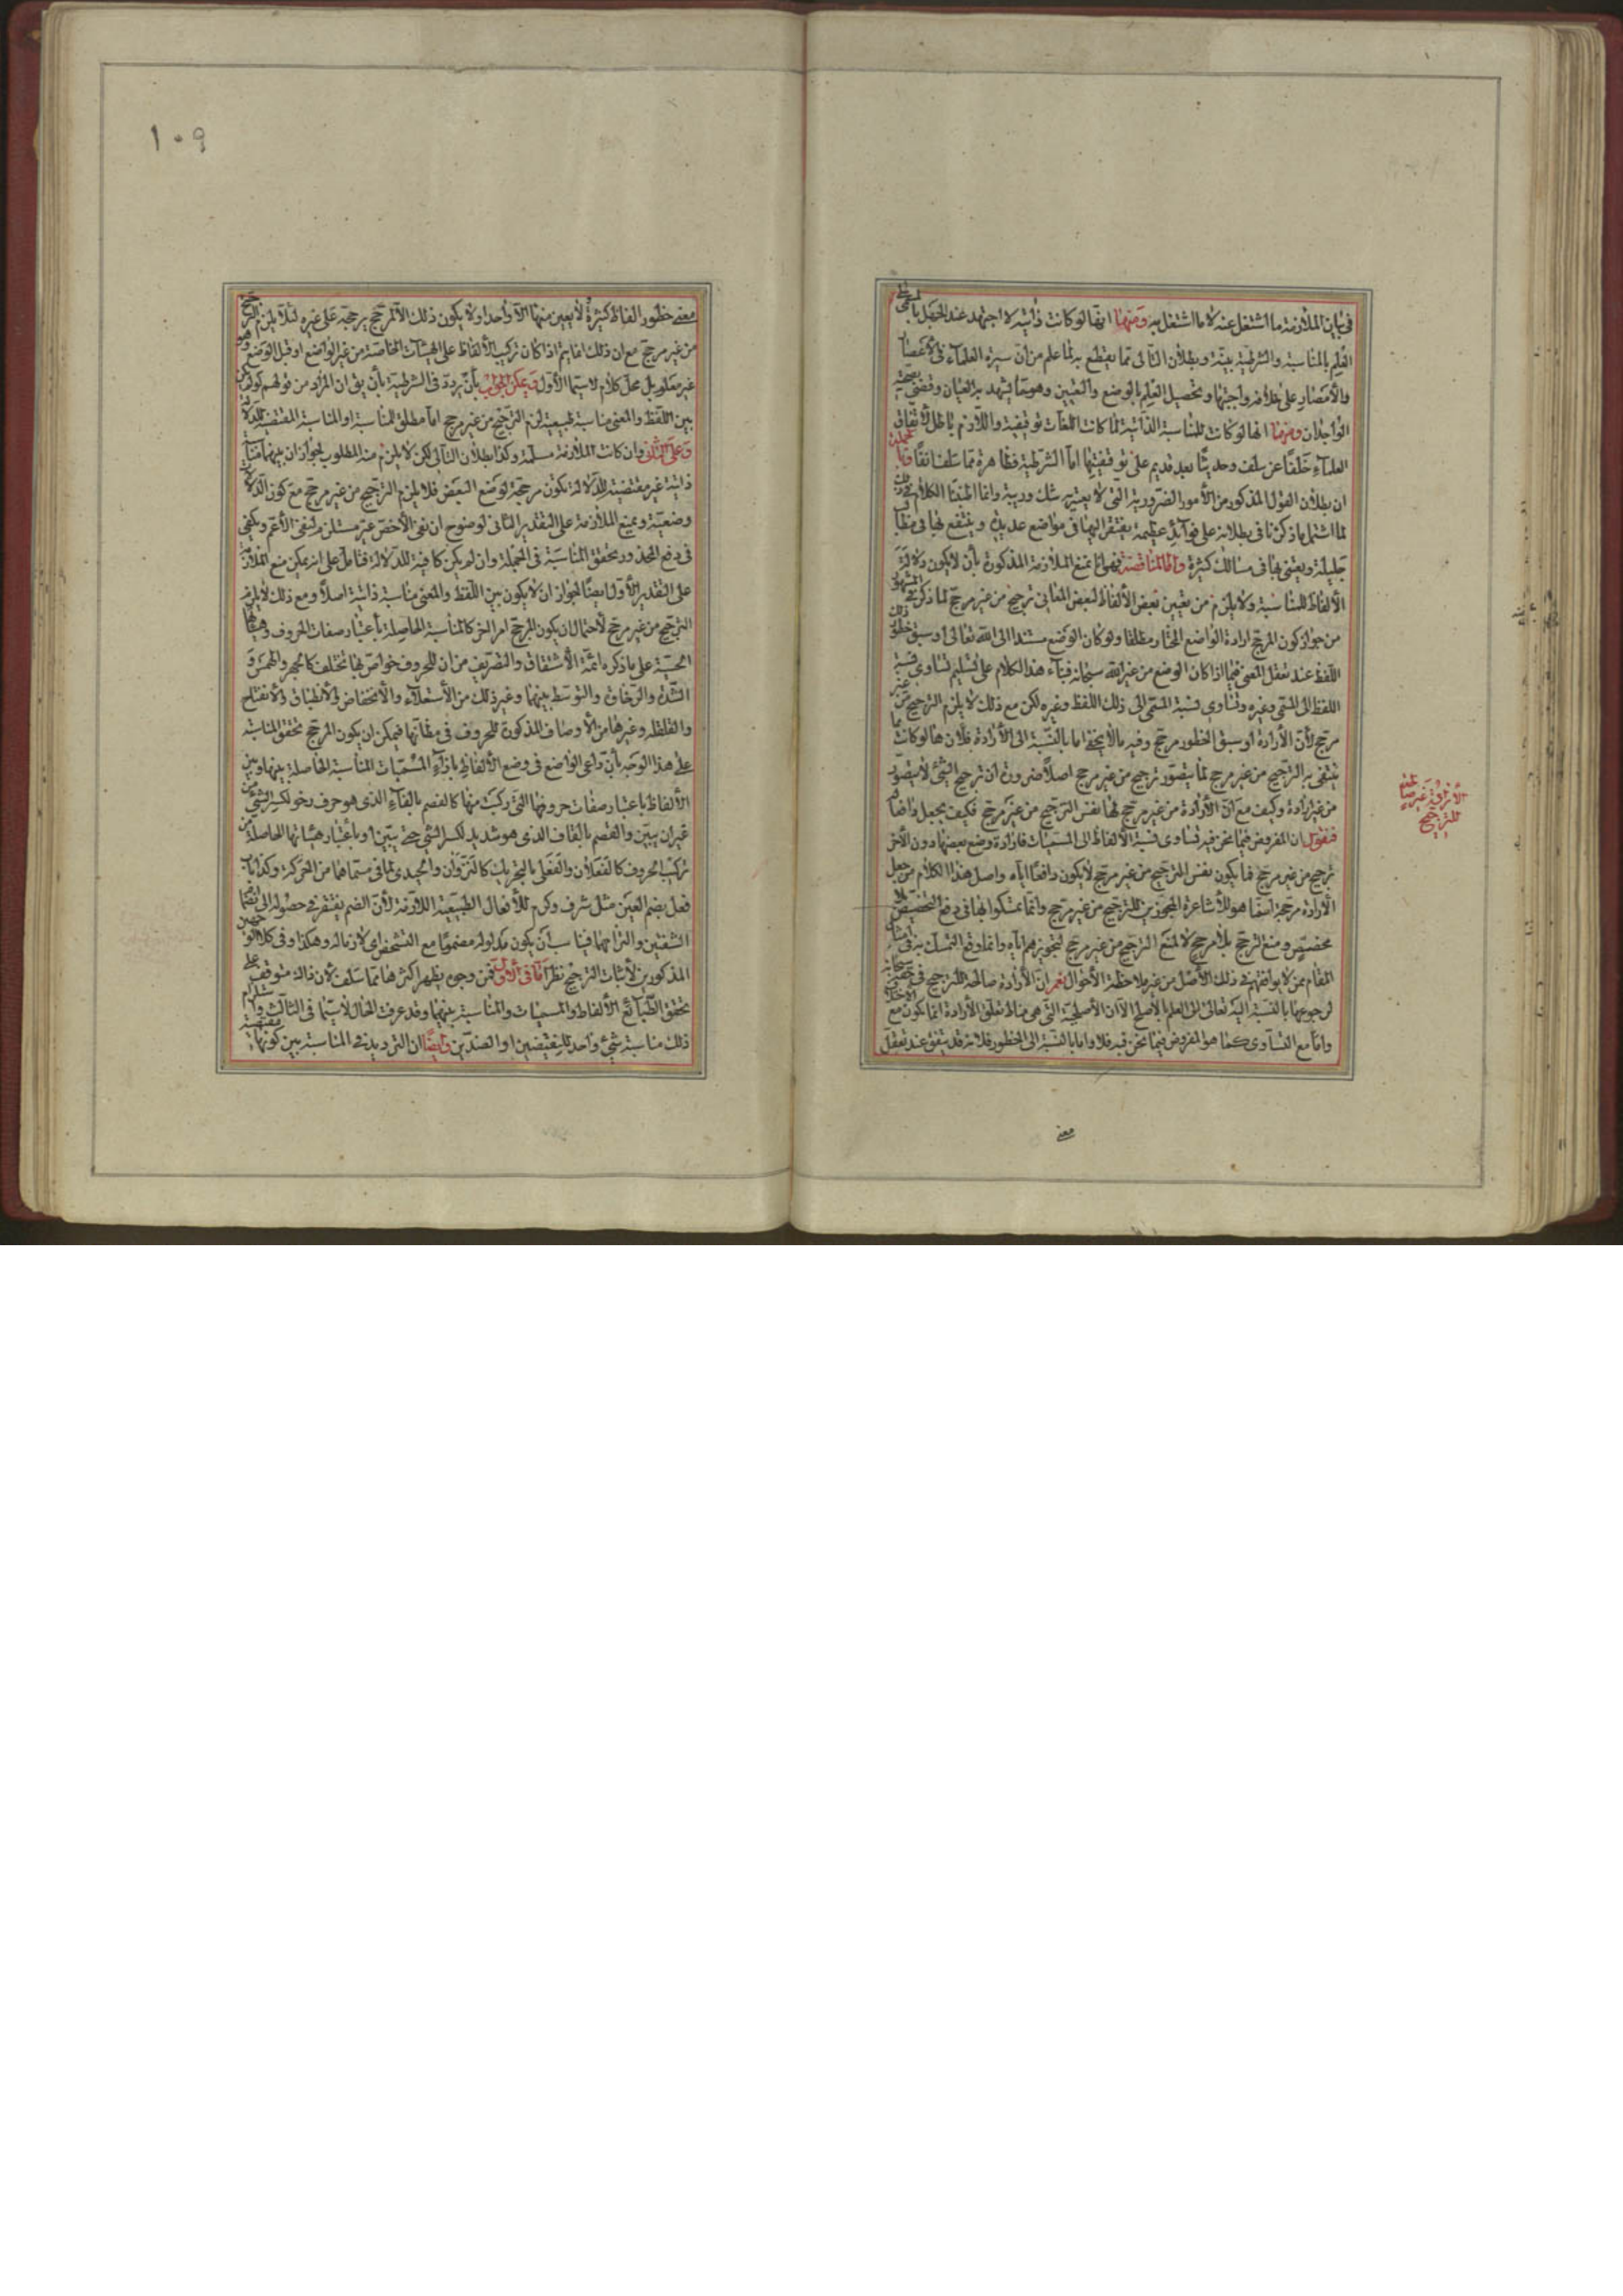 في بيان الملازمة ما اشتغل عنه لا ما اشتغل به ومنها انها لو كانت ذاتية لاجتهد عند الجهل بالمعنى في
العلم بالمناسبة والشرطية بينة وبطلان التالي مما يقطع به لما علم من ان سيرة العلماء في الاعصار
والأمصار على خلافه واجتها وتحصيل العلم بالوضع والتعيين وهو مما يشهد به العيان وقضى بصحته
الوجدان ومنها انها لو كانت للمناسبة الذاتية لما كانت اللغات توقيفية واللازم باطل لاتفاق
العلماء خلفا عن سلف وحديثا بعد قديم على توقيفيتها اما الشرطية فظاهرة مما سلف انفا وبالجملة
ان بطلان القول المذكور من الأمور الضرورية التي لا يعتريه شك وريبة وانما اطنبنا الكلام في ذلك
لما اشتمل ما ذكرنا في بطلانه على فوائد عظيمة يفتقر اليها في مواضع عديدة وينتفع بها في مطالب
جليلة ويعتنى بها في مسالك كثيرة واما المناقضة فهو انا نمنع الملازمة المذكورة بأن لا يكون دلالة
الألفاظ للمناسبة ولا يلزم من تعيين بعض الألفاظ لبعض المعاني ترجيح من غير مرجح لما ذكر في المشهور
من جواز كون المرجح ارادة الواضع المختار مطلقا ولو كان الوضع مستندا الى الله تعالى او سبق خطور ذلك
اللفظ عند تعقل المعنى فيما اذا كان الوضع من غير الله سبحانه فبناء هذا الكلام على تسليم تساوي نسبة
اللفظ الى المسمى وغيره وتساوي نسبة المسمى الى ذلك اللفظ وغيره لكن مع ذلك لا يلزم الترجيح من غير
مرجح لأن الأرادة او سبق الخطور مرجح وفيه ما لا يخفى اما بالنسبة الى الأرادة فلأنها لو كانت مما
ينتفى به الترجيح من غير مرجح لما يتصور ترجيح من غير مرجح اصلا ضرورة ان ترجيح الشئ لا يتصور
من غير ارادة وكيف مع ان الأرادة من غير مرجح لها نفس الترجيح من غير مرجح فكيف يجعل دافعا له
فنقول ان المفروض فيما نحن فيه تساوي نسبة الألفاظ الى المسميات فارادة وضع بعضها دون الأخر
ترجيح من غير مرجح فما يكون نفس الترجيح من غير مرجح لا يكون دافعا اياه واصل هذا الكلام من جعل
الأرادة مرجحة انما هو للأشاعرة المجوزين للترجيح من غير مرجح وانما تمسكوا بها في دفع التخصيص بلا
مخصص ومنع الترجح بلا مرجح لا لمنع الترجيح من غير مرجح لتجويزهم اياه وانما وقع التمسك به في امثال
المقام ممن لا يوافقهم في ذلك الأصل من غير ملاحظة الأحوال نعم ان الأرادة صالحة للترجيح في حقه سبحانه
لرجوعها بالنسبة اليه تعالى الى العلم بالأصلح الا ان الأصلحية التي هي مناط تعلق الأرادة انما يكون مع الأختلاف
واما مع التساوي كما هو المفروض فيما نحن فيه فلا واما بالنسبة الى الخطور فلأنه قد يتفق عند تعقل
معنى
الأرادة غير صالحة
للترجيح
١٠٩
معنى خطور الفاظ كثيرة لا يعين منها الا واحدا ولا يكون ذلك الا لمرجح يرجحه على غيره لئلا يلزم الترجيح
من غير مرجح مع ان ذلك انما يتم اذا كان تركيب الألفاظ على الهيئات الخاصة من غير الواضع او قبل الوضع وهو
غير معلوم بل محل كلام لا سيما الأول ويمكن الجواب بأن يردد في الشرطية بأن يق ان المراد من قولهم لو لم يكن
بين اللفظ والمعنى مناسبة طبيعية لزم الترجيح من غير مرجح اما مطلق المناسبة او المناسبة المقتضية للدلالة
وعلى الثاني وان كانت الملازمة مسلمة وكذا بطلان التالي لكن لا يلزم منه المطلوب لجواز ان بينهما مناسبة
ذاتية غير مقتضية للدلالة تكون مرجحة لوضع البعض فلا يلزم الترجيح من غير مرجح مع كون الدلالة
وضعية ويمنع الملازمة على التقدير الثاني لوضوح ان نفى الأخص غير مستلزم لنفى الأعم ويكفى
في دفع المحذور تحقق المناسبة في الجملة وان لم يكن كافية للدلالة فتأمل على انه يمكن منع الملازمة
على التقدير الأول ايضا لجواز ان لا يكون بين اللفظ والمعنى مناسبة ذاتية اصلا ومع ذلك لا يلزم
الترجيح من غير مرجح لأحتمال ان يكون المرجح امرا اخر كالمناسبة الحاصلة بأعتبار صفات الحروف وهيئاتها
الحسية على ما ذكره ائمة الأشتقاق والتصريف من ان للحروف خواص بها تختلف كالجهر والهمس و
الشدة والرخاوة والتوسط بينهما وغير ذلك من الأستعلاء والأنخفاض والأنطباق والأنفتاح
والقلقلة وغيرها من الأوصاف المذكورة للحروف في مظانها فيمكن ان يكون المرجح تحقق المناسبة
على هذا الوجه بأن راعى الواضع في وضع الألفاظ بازاء المسميات المناسبة الحاصلة بينها وبين
الألفاظ باعتبار صفات حروفها التي ركبت منها كالفصم بالفاء الذي هو حرف رخو لكسر الشئ من
غير ان يبين والقصم بالقاف الذي هو شديد لكسر الشئ حتى يبين او بأعتبار هيئاتها الحاصلة من
تركيب الحروف كالفعلان والفعلى بالتحريك كالنزوان والحيدى لما في مسماهما من الحركة وكذا باب
فعل بضم العين مثل شرف وكرم للأفعال الطبيعية اللازمة لأن الضم يفتقر في حصوله الى انضمام
الشفتين والتزامهما فيناسب أن يكون مدلوله مضموما مع الشخص اى لازما له وهكذا وفي كلا الوجهين
المذكورين لأثبات الترجيح نظر اما في الأول فمن وجوه يظهر اكثرها مما سلف لأن ذلك متوقف على
تحقق الطبائع الألفاظ والمسميات والمناسبة بينهما وقد عرفت الحال لاسيما في الثالث
ذلك مناسبة شئ واحد للنقيضين او الضدين وايضا ان الترديد في المناسبة بين كونها